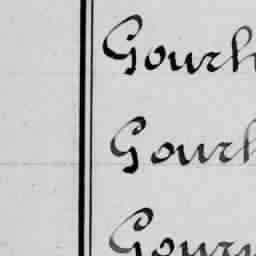 Gourh
Gourh
Gourn